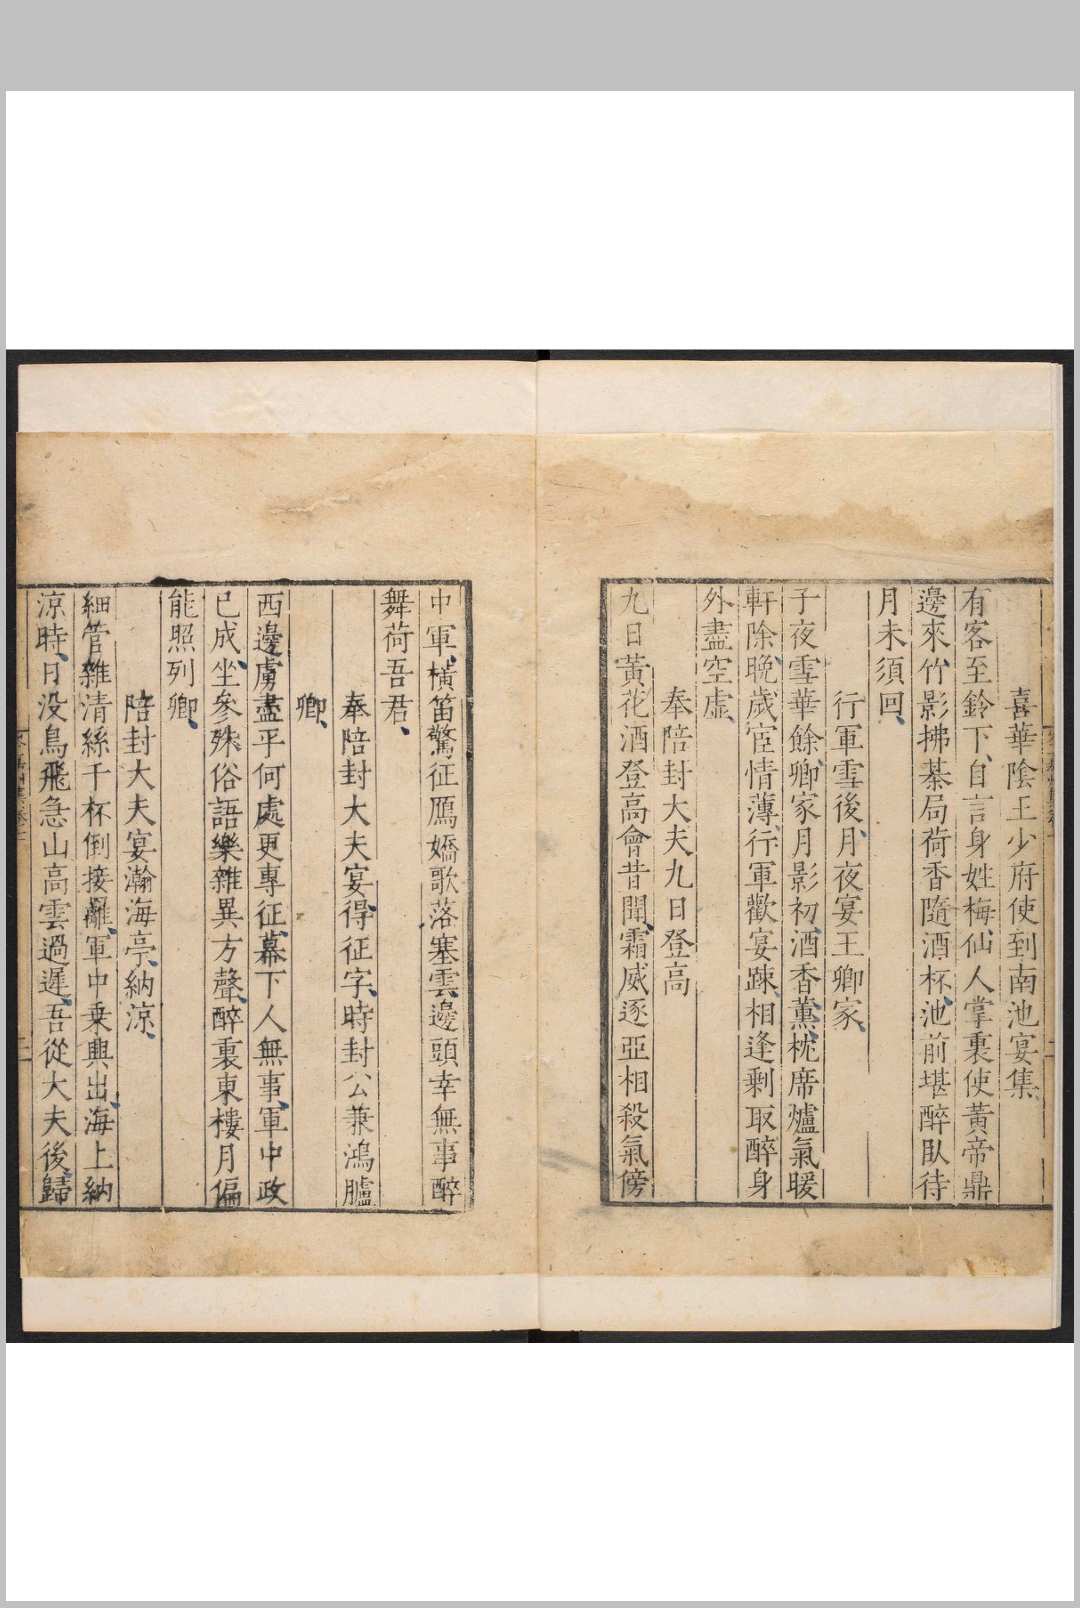 喜華陰王少府使到南池宴集
有客至鈴下自言身姓梅仙人掌裏使黃帝鼎
邊來竹影拂棊局荷香隨酒杯池前堪醉臥待
月未須回
行軍雪後月夜宴王卿家
子夜雪華餘卿家月影初酒香薰枕席爐氣暖
軒除晚歲宦情薄行軍歡宴踈相逢剩取醉身
外盡空虛
奉陪封大夫九日登高
九日黃花酒登高會昔聞霜威逐亞相殺氣傍
中軍橫笛驚征鴈嬌歌落塞雲邊頭幸無事醉
舞荷吾君
奉陪封大夫宴得征字時封公兼鴻臚
卿
西邊虜盡平何處更專征幕下人無事軍中政
已成坐參殊俗語樂雜異方聲醉裏東樓月偏
能照列卿
陪封大夫宴瀚海亭納涼
細管雜清絲千杯倒接䍦軍中乗興出海上納
涼時日没鳥飛急山高雲過遲吾從大夫後歸